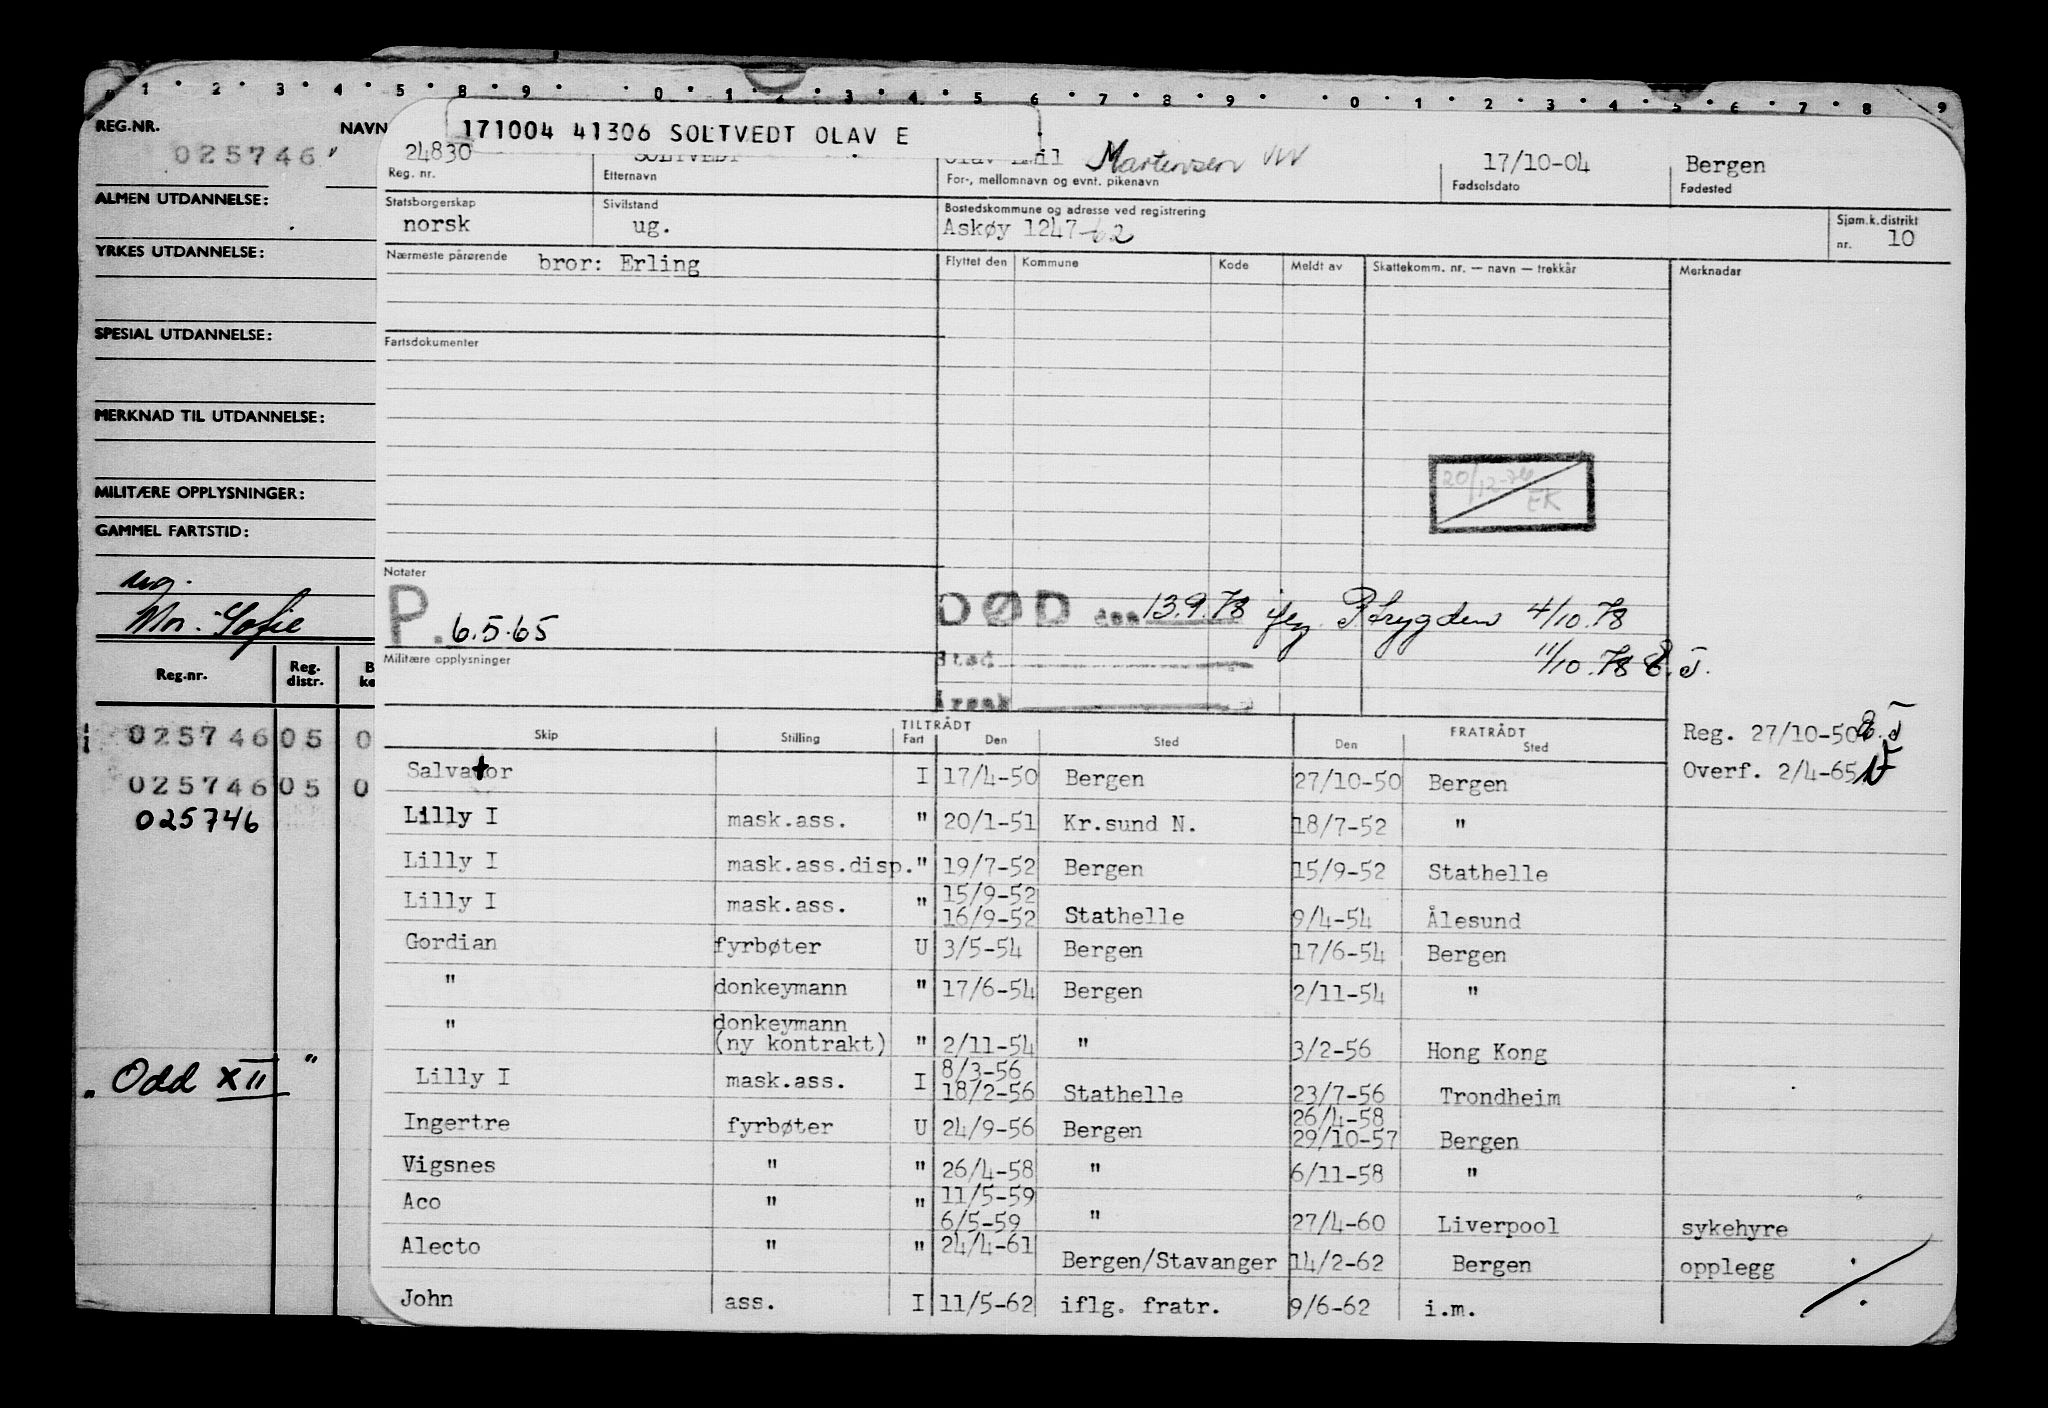 1 2 3 4 5 8 9 0 1 2 3 4 5 6 7 8 9 0 1 2 3 4 5 6 7 8 9
REG.NR. NAVN
025746
ALMEN UTDANNELSE:
YRKES UTDANNELSE:
SPESIAL UTDANNELSE:
MERKNAD TIL UTDANNELSE:
MILITÆRE OPPLYSNINGER:
GAMMEL FARTSTID:
ug.
Mor: Sofie
Reg.nr. Reg. distr.
025746 05 0
025746 05 0
025746
"Odd XII"
171004 41306 SOLTVEDT OLAV E
24830 SOLTVEDT Olav Emil Martensen 17/10-04 Bergen
Reg. nr. Etternavn For-, mellomnavn og evnt. pikenavn Fødselsdato Fødested
Statsborgerskap Sivilstand Bostedskommune og adresse ved registrering Sjøm.k.distrikt
norsk ug. Askøy 1247-62 nr. 10
Nærmeste pårørende bror: Erling Flyttet den Kommune Kode Meldt av Skattekomm. nr. — navn — trekkår Merknader
Fartsdokumenter
20/12-
EK
Notater
P. 6.5.65 DØD den 13.9.78 Ptrygden 4/10.78
Militære opplysninger Sted 11/10.78 E.T.
Årsak
TILTRÅDT FRATRÅDT
Skip Stilling Fart Den Sted Den Sted
Reg. 27/10-50 E.T
Overf. 2/4-65
Salvator I 17/4-50 Bergen 27/10-50 Bergen
Lilly I mask.ass. " 20/1-51 Kr.sund N. 18/7-52 "
Lilly I mask.ass.disp. " 19/7-52 Bergen 15/9-52 Stathelle
Lilly I mask.ass. " 15/9-52
16/9-52 Stathelle 9/4-54 Ålesund
Gordian fyrbøter U 3/5-54 Bergen 17/6-54 Bergen
" donkeymann " 17/6-54 Bergen 2/11-54 "
" donkeymann
(ny kontrakt) " 2/11-54 " 3/2-56 Hong Kong
8/3-56
Lilly I mask.ass. I 18/2-56 Stathelle 23/7-56 Trondheim
26/4-58
Ingertre fyrbøter U 24/9-56 Bergen 29/10-57 Bergen
Vigsnes " " 26/4-58 " 6/11-58 "
Aco " " 11/5-59
6/5-59 " 27/4-60 Liverpool sykehyre
Alecto " " 24/4-61
Bergen/Stavanger 14/2-62 Bergen opplegg
John ass. I 11/5-62 iflg. fratr. 9/6-62 i.m.